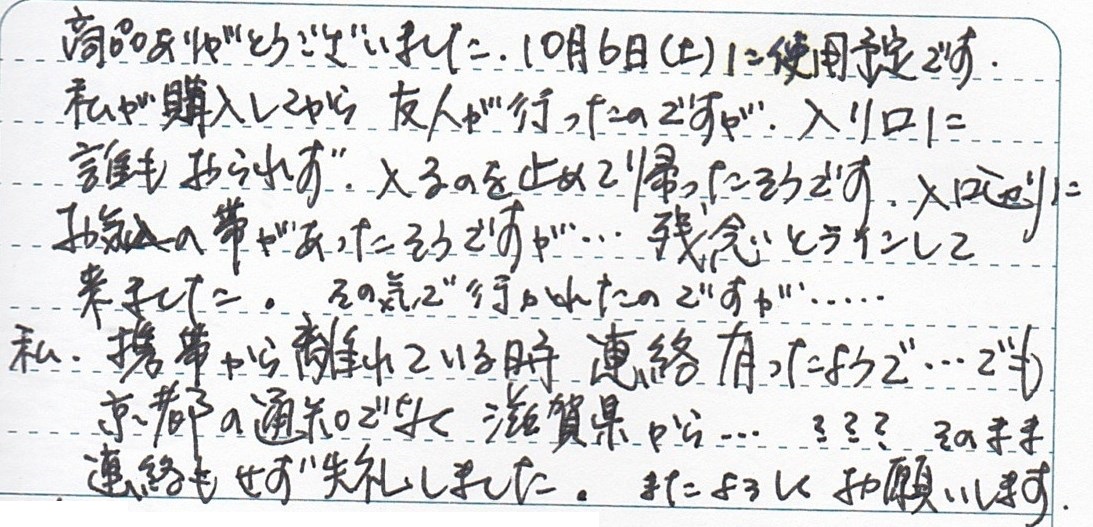 商品ありがとうございました.10月6日(土)に使用予定です.
私が購入してから 友人が行ったのですが、入り口に
誰もおられず、入るのを止めて帰ったそうです、入口辺りに
お気入の帯があったそうですが… 残念とラインして
来ました。 その気で行かれたのですが……
私、携帯から離れている時 連絡有ったようで…でも
京都の通知でなく 滋賀県から… ??? そのまま
連絡もせず失礼しました。 またよろしくお願いします.